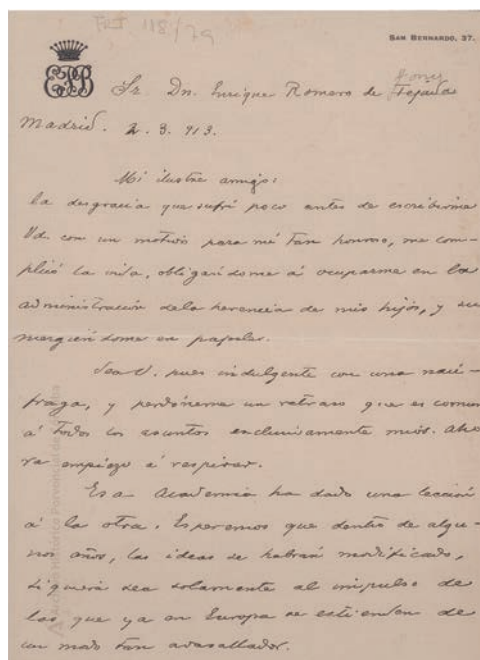 FRT 118/79
SAN BERNARDO, 37.
EPB
Sr. Dn. Enrique Romero de Tejada
Madrid. 2. 3. 913.
Mi ilustre amigo:
la desgracia que sufrí poco antes de escribirme
Vd. con un motivo para mí tan honroso, me com-
plicó la vida, obligándome á ocuparme en la
administración de la herencia de mis hijos, y su
mergiéndome en papeles.
Sea V. pues indulgente con una náu-
fraga, y perdóneme un retraso que es comun
á todos los asuntos exclusivamente mios. Aho
ra empiezo á respirar.
Esa Academia ha dado una leccion
á la otra. Esperemos que dentro de algu-
nos años, las ideas se habrán modificado,
siquiera sea solamente al impulso de
las que ya en Europa se estienden de
un modo tan avasallador.